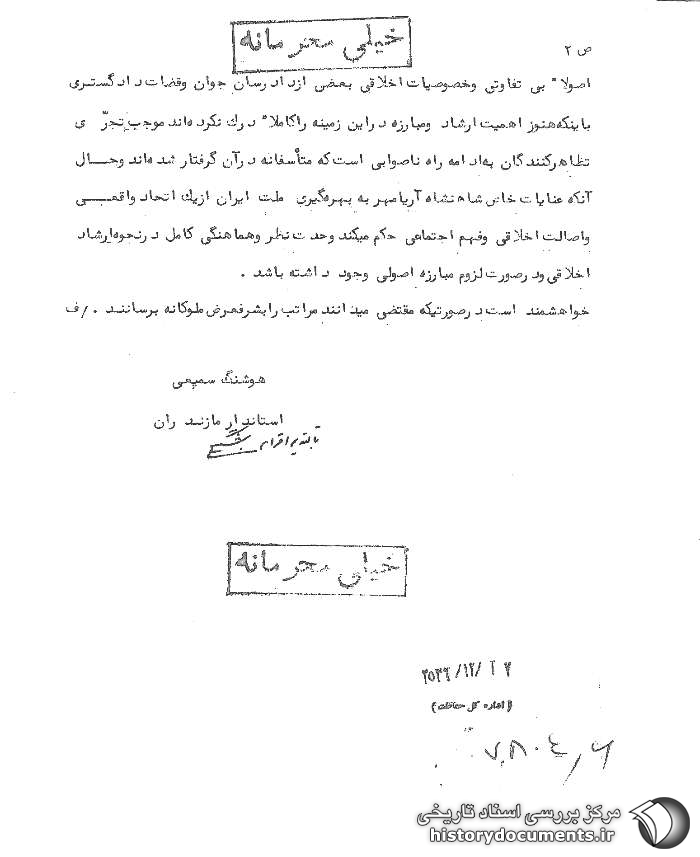 خیلی محرمانه
ص ۲
اصولا" بی تفاوتی وخصوصیات اخلاقی بعضی ازدادرسان جوان وقضات دادگستری
بااینکه هنوز اهمیت ارشاد ومبارزه دراین زمینه راکاملا" درك نکرده اند موجب تجرّی
تظاهرکنندگان به ادامه راه ناصوابی است که متأسفانه درآن گرفتار شده اند وحال
آنکه عنایات خاص شاهنشاه آریامهر به بهره گیری ملت ایران ازیك اتحاد واقعی
واصالت اخلاقی وفهم اجتماعی حکم میکند وحدت نظر وهماهنگی کامل درنحوه ارشاد
اخلاقی ودرصورت لزوم مبارزه اصولی وجود داشته باشد .
خواهشمند است درصورتیکه مقتضی میدانند مراتب رابشرفعرض ملوکانه برسانند . /ف
هوشنگ سمیعی
استاندار مازندران
خیلی محرمانه
۲۵۳۶/۱۲/
(اداره کل حفاظت)
مرکز بررسی اسناد تاریخی
historydocuments.ir